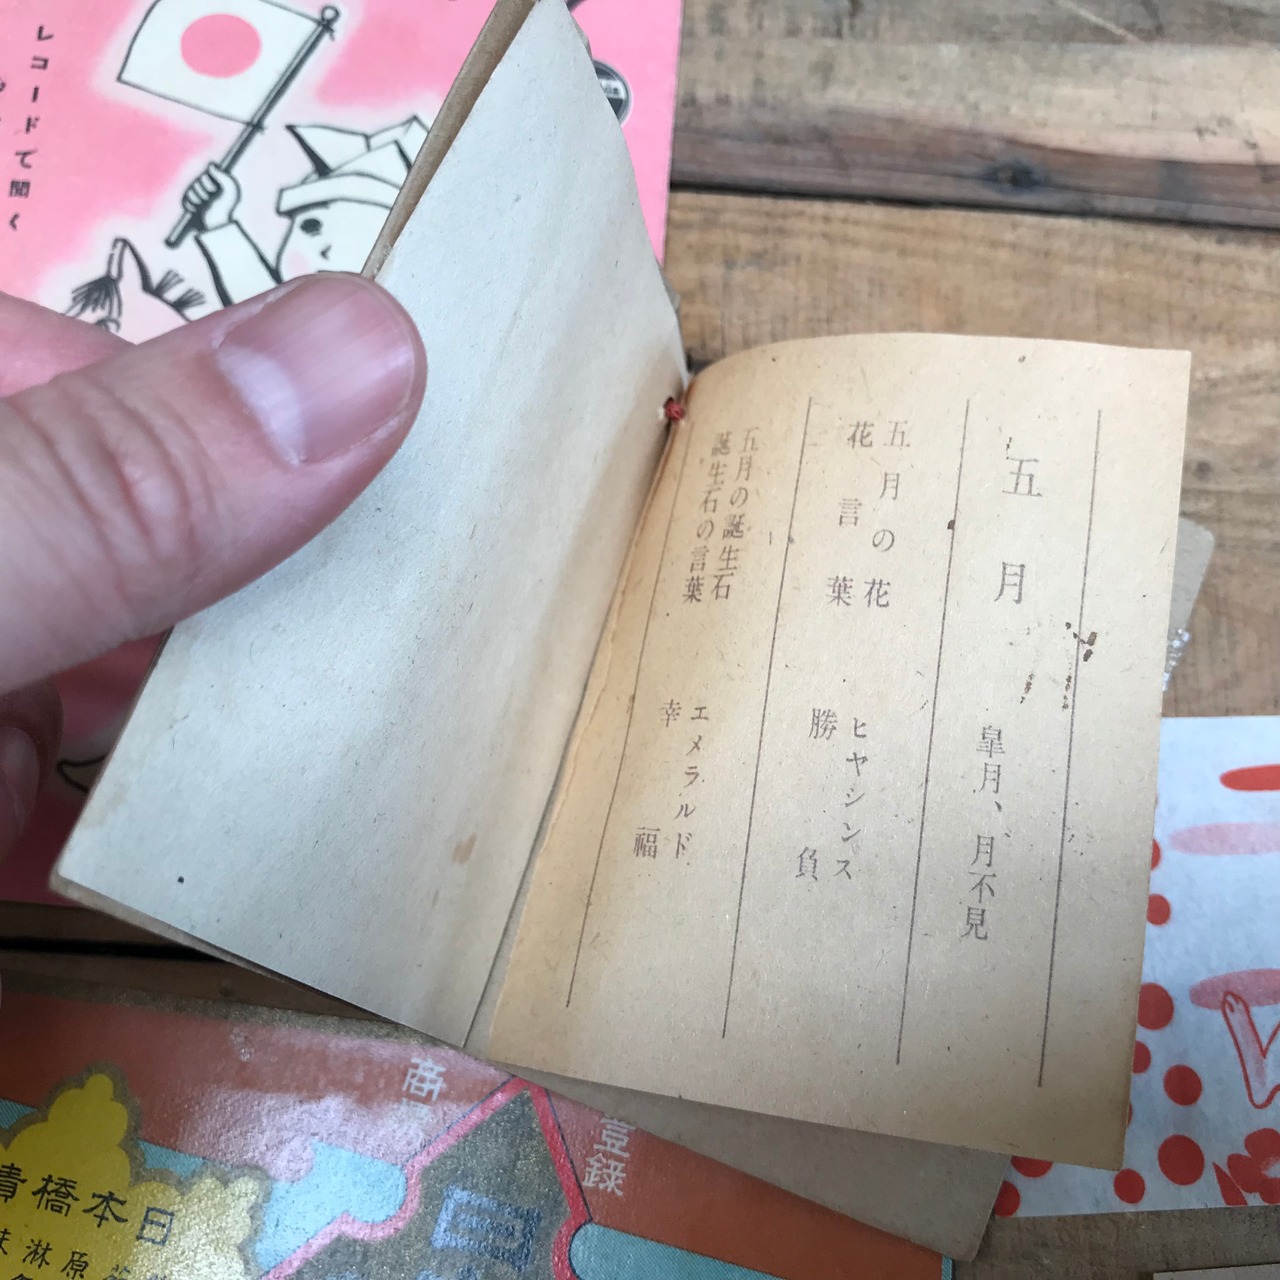 五月
皐月、月不見
五月の花
ヒヤシンス
花言葉
勝負
五月の誕生石
エメラルド
誕生石の言葉
幸福
レコードで聞く
登録
日本橋